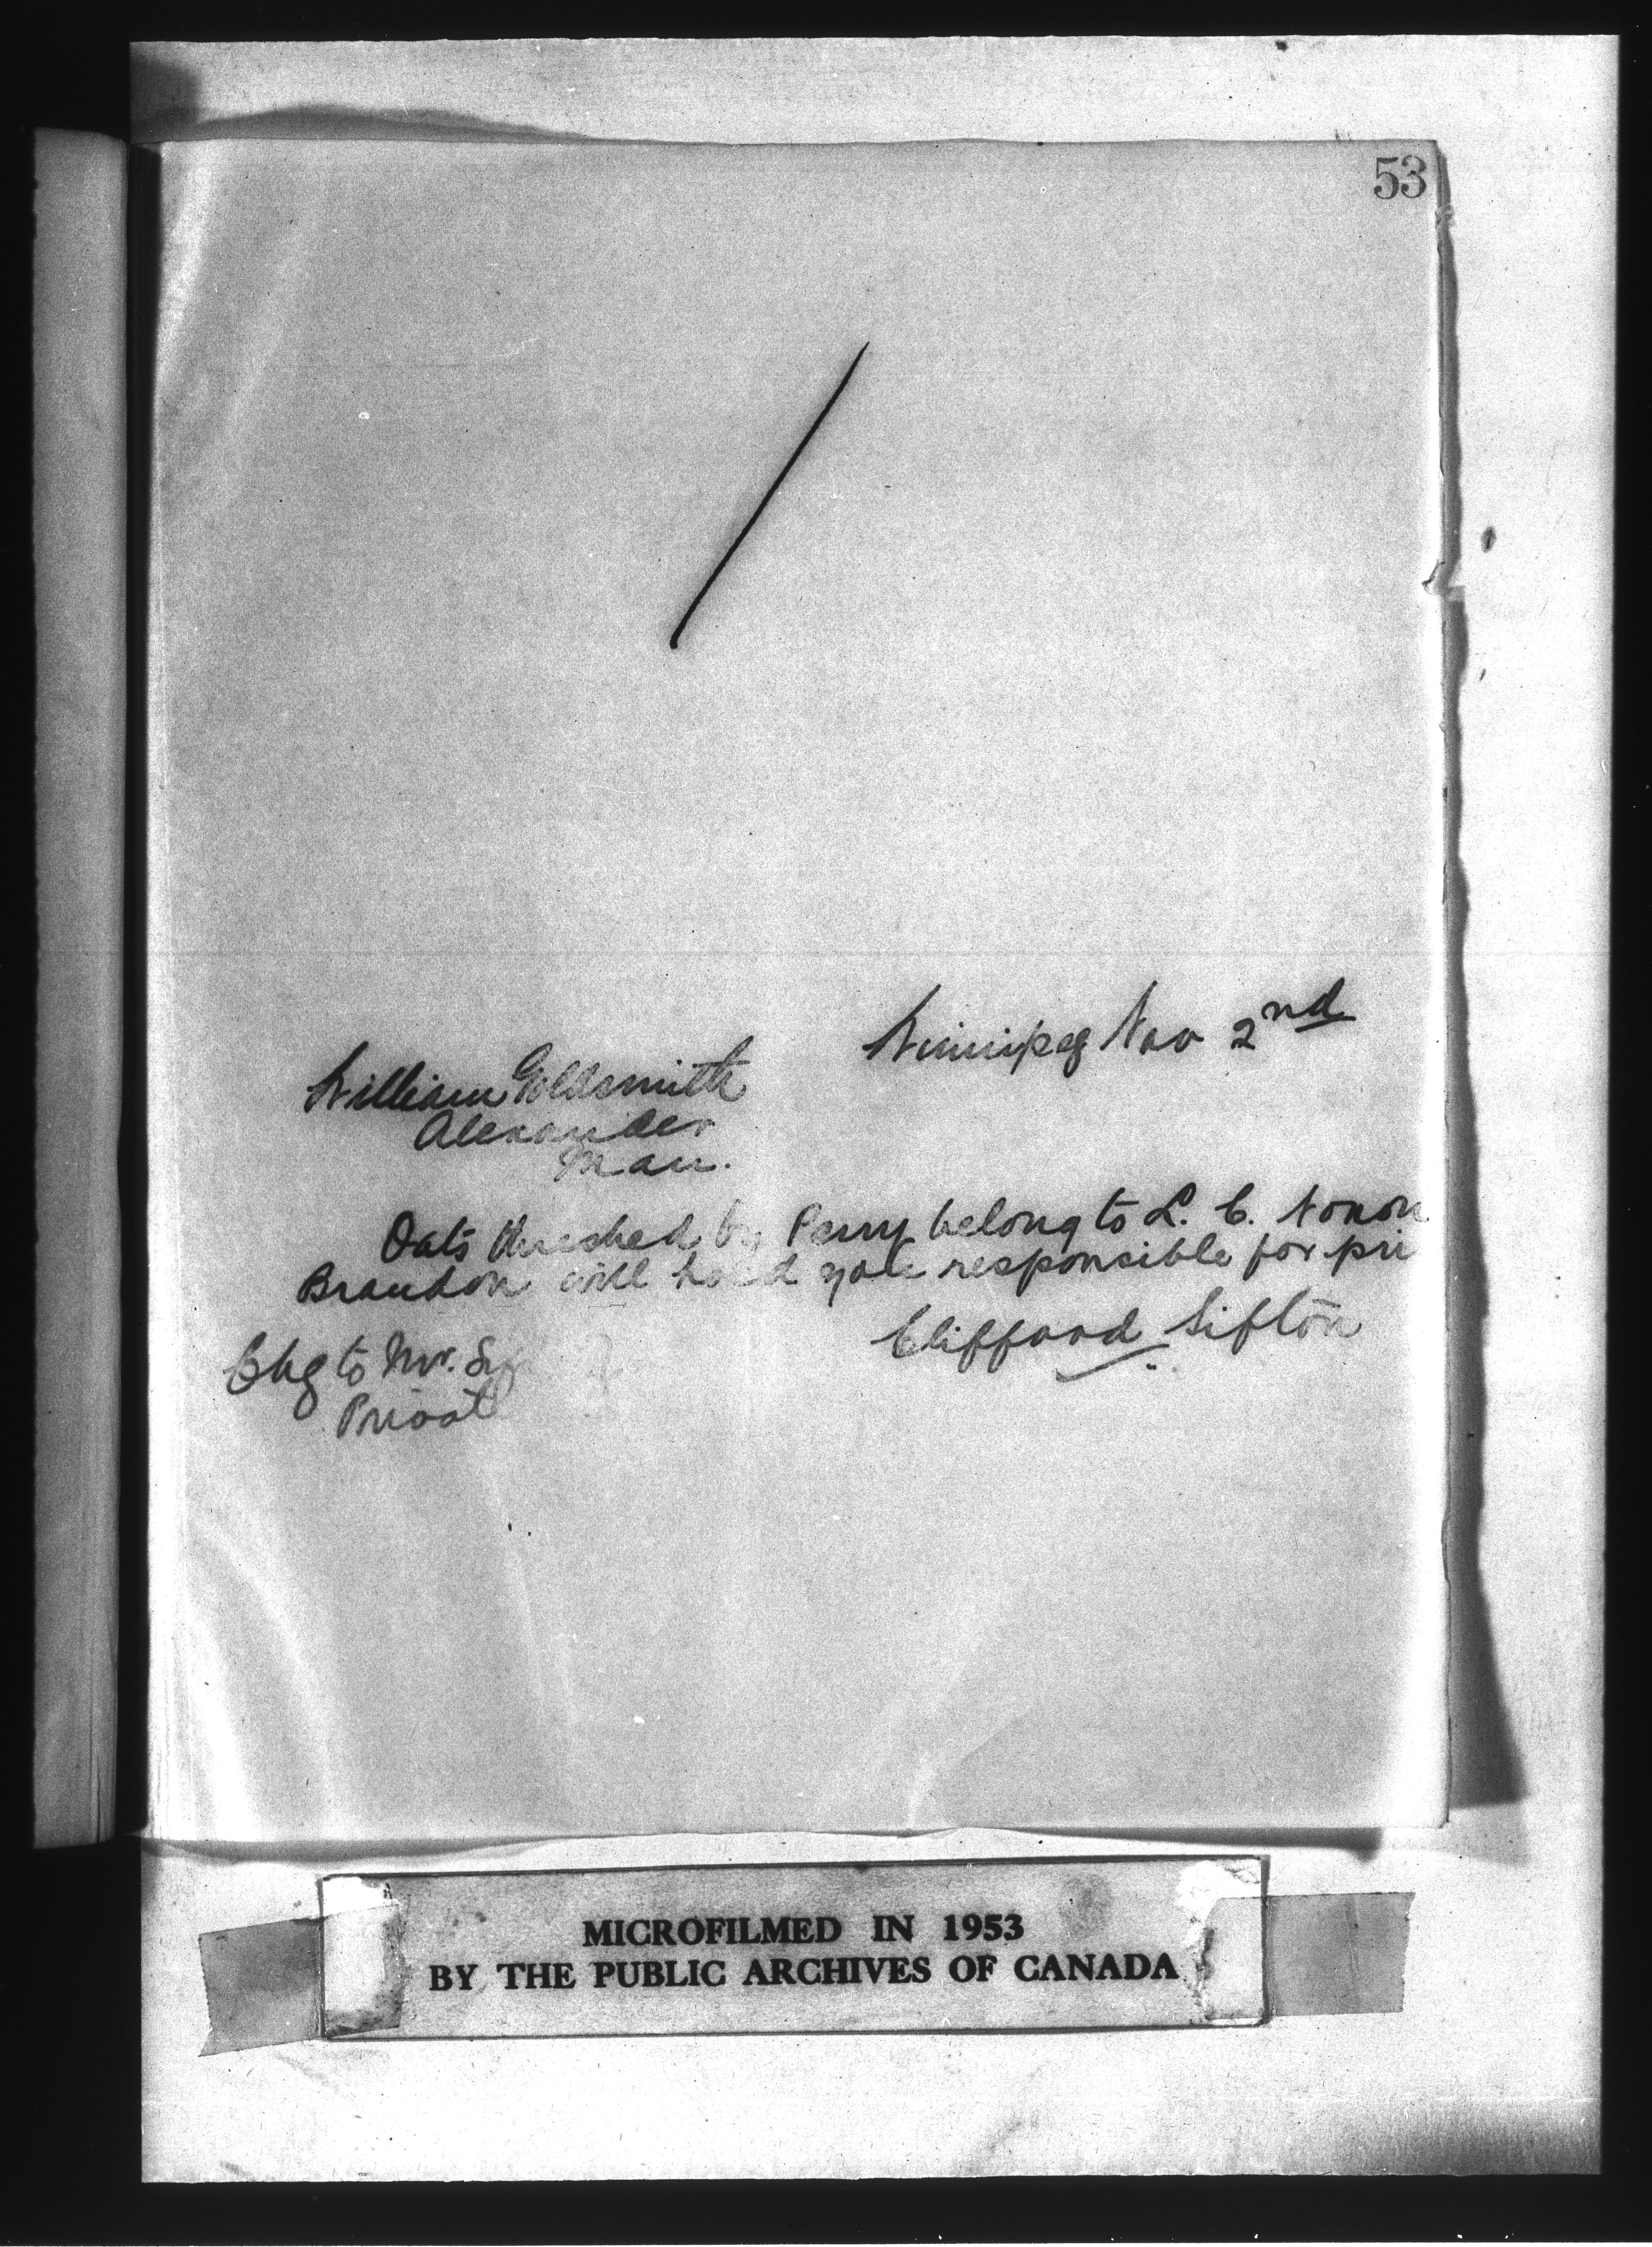 53
Winnipeg Nov 2nd
William Goldsmith
Alexander
Man.
Oats threshed by Perry belong to L. C.
Brandon will hold you responsible for pri
Clifford Sifton
Chg to Mr. S
Privat
MICROFILMED IN 1953
BY THE PUBLIC ARCHIVES OF CANADA